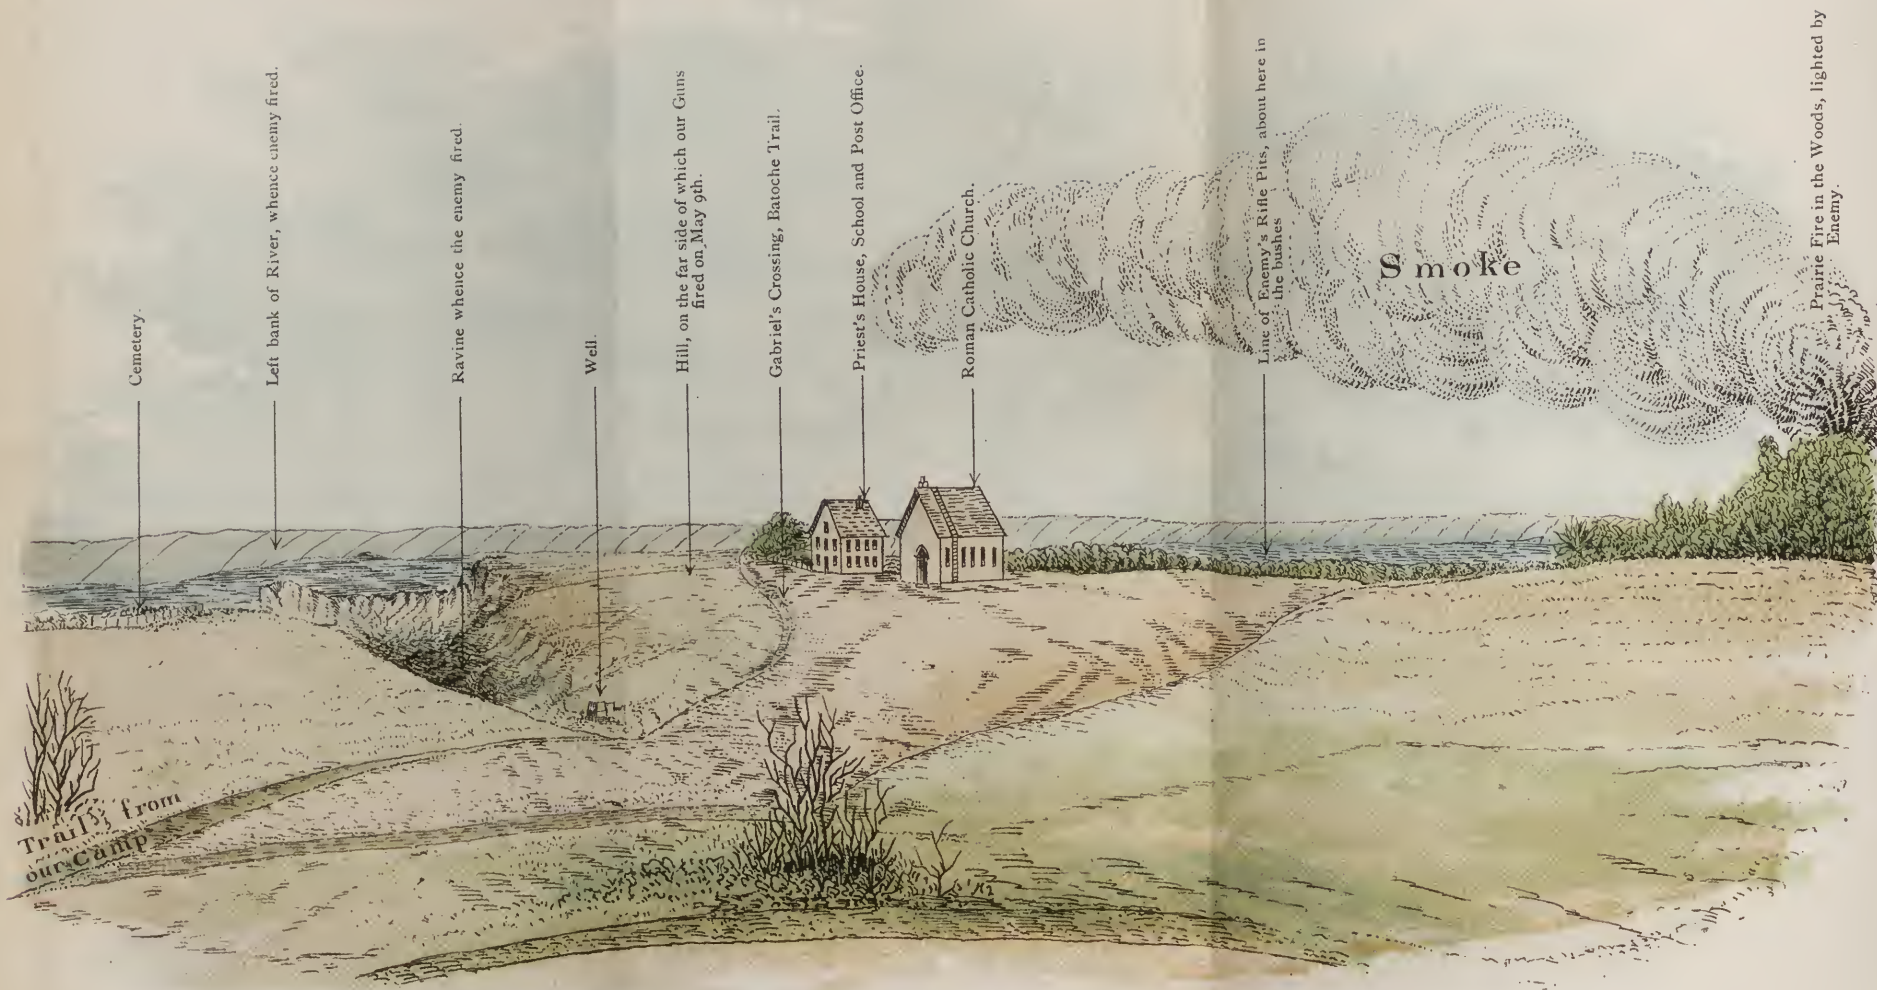 Cemetery.
Left bank of River, whence enemy fired.
Ravine whence the enemy fired.
Well.
Hill, on the far side of which our Guns
fired on May 9th.
Gabriel's Crossing, Batoche Trail.
Priest's House, School and Post Office.
Roman Catholic Church.
Line of Enemy's Rifle Pits, about here in
the bushes
Smoke
Prairie Fire in the Woods, lighted by
Enemy.
Trail from
our Camp